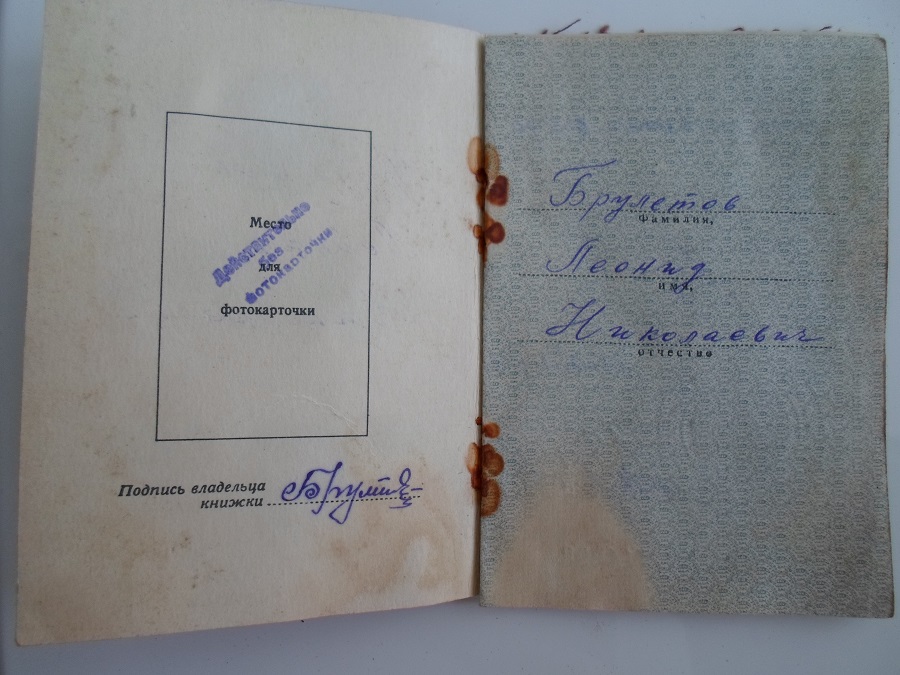 Место
для
фотокарточки
Действительно
без
фотокарточки
Подпись владельца
книжки
Брулетов
фамилия,
Леонид
имя,
Николаевич
отчество